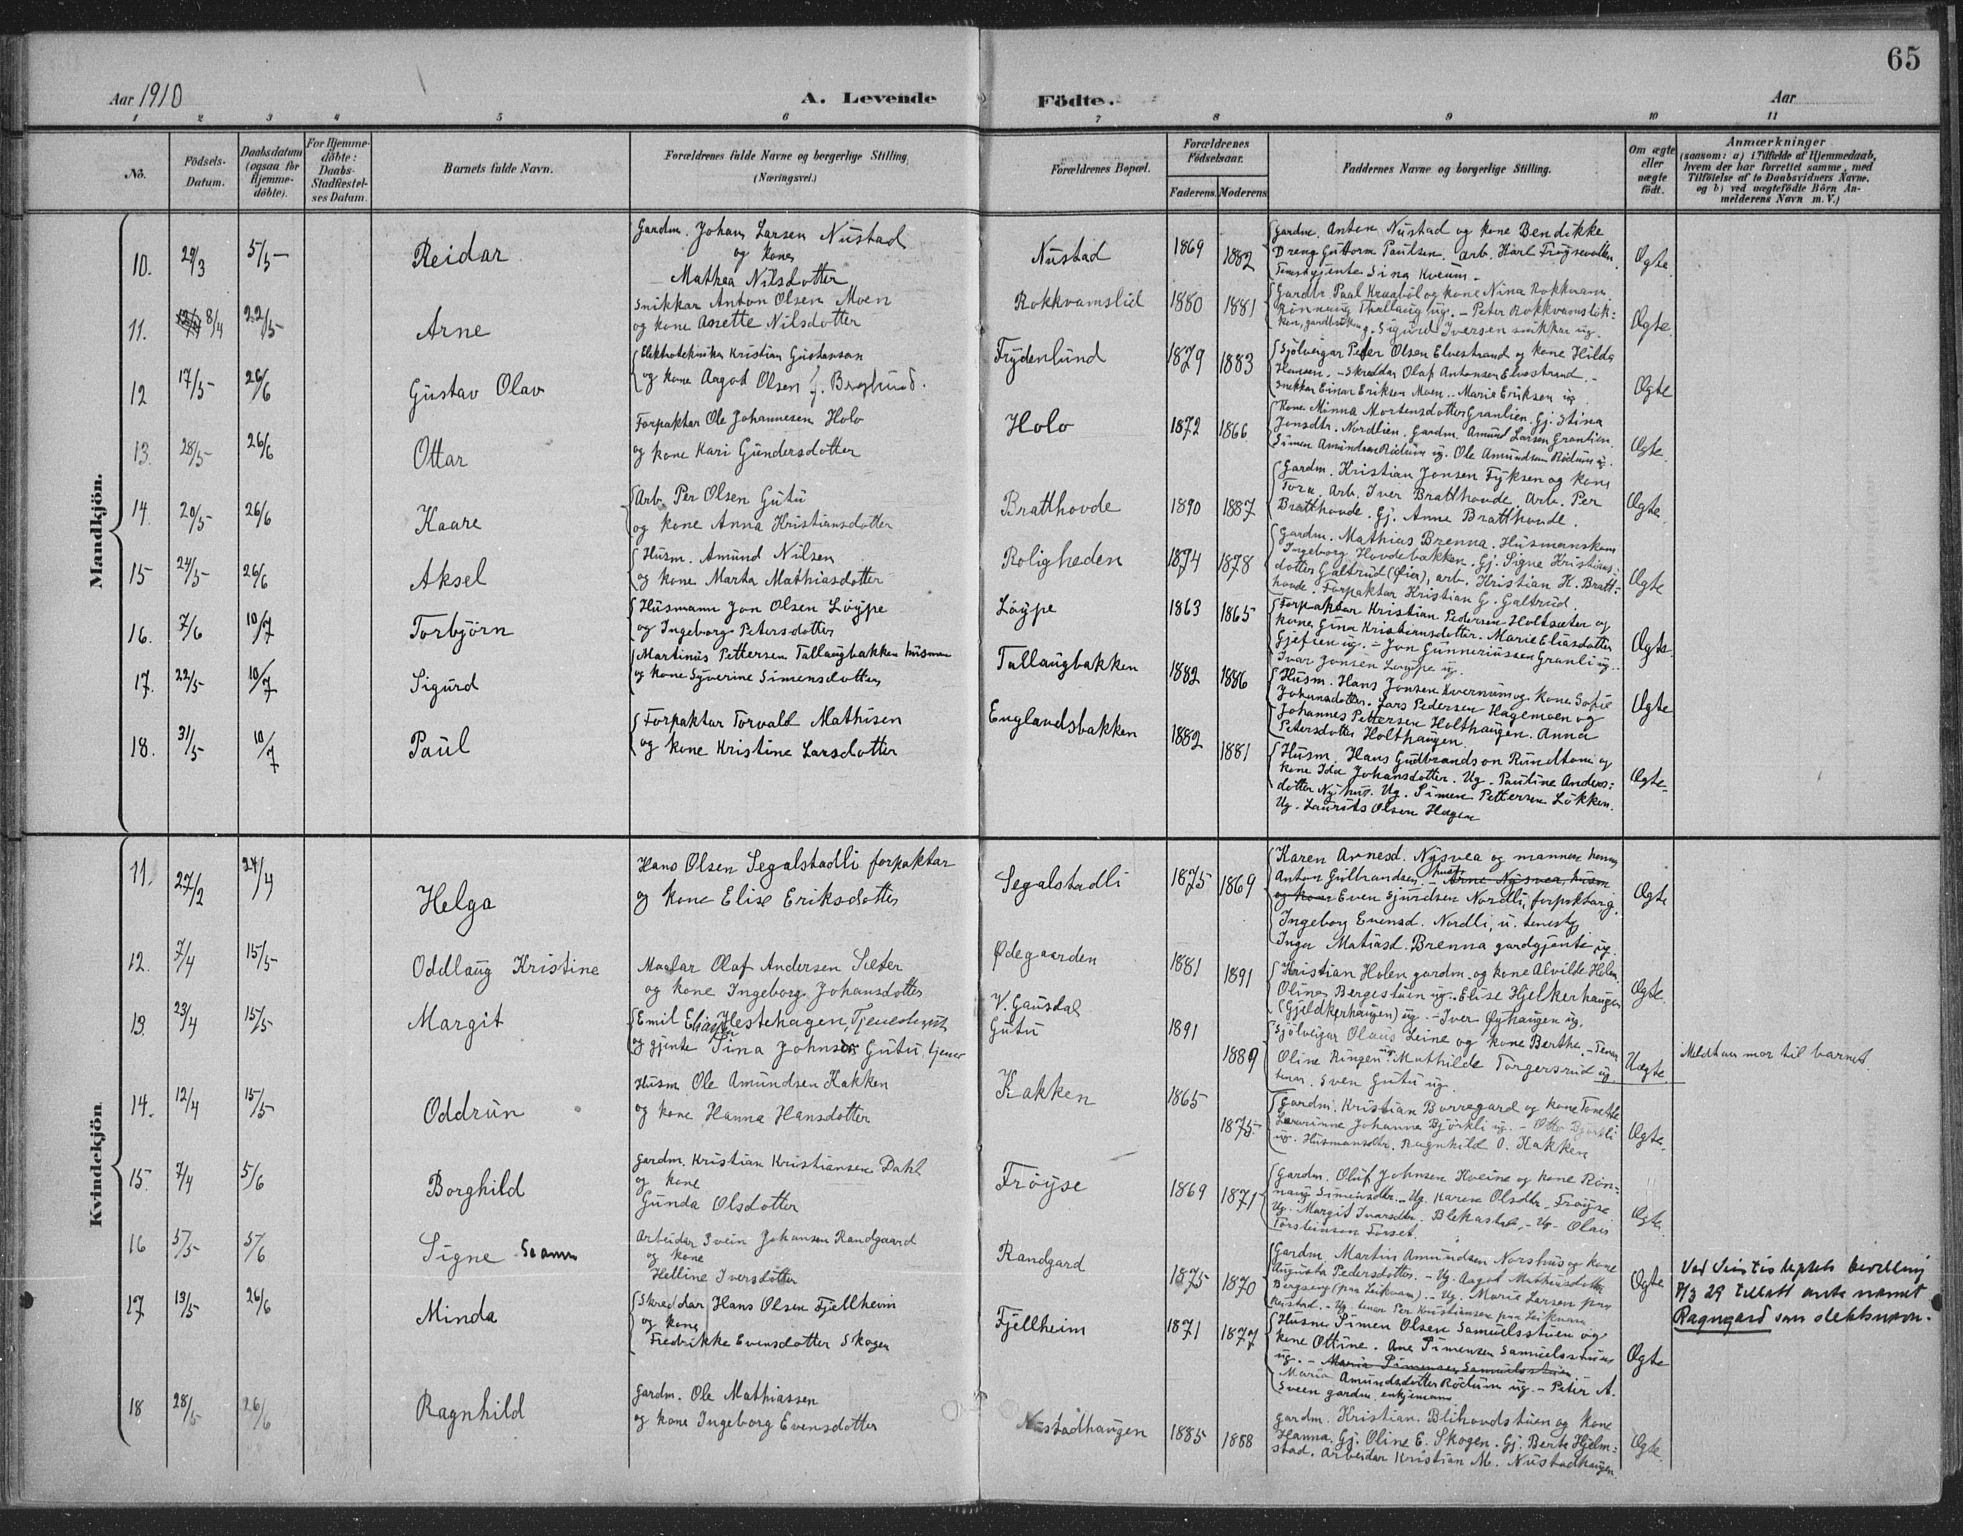 65
Aar 1910
A. Levende Födte.
Aar
1 2 3 4 5 6 7 8 9 10 11
No.
Födsels-Datum.
Daabsdatum (ogsaa för Hjemme-döbte).
For Hjemme-döbte: Daabs-Stadfæstel-ses Datum.
Barnets fulde Navn.
Forældrenes fulde Navne og borgerlige Stilling (Næringsvei.)
Forældrenes Bopæl.
Forældrenes Födselsaar.
Faderens. Moderens.
Faddernes Navne og borgerlige Stilling.
Om ægte eller uægte födt.
Anmærkninger
(saasom: a) i Tilfælde af Hjemmedaab, hvem der har forrettet samme, med Tilföielse af to Daabsvidners Navne, og b) ved uægtefödte Börn An-melderens Navn m. V.)
Mandkjön.
10. 29/3 5/5 Reidar
Gardm. Johan Larsen Nustad
og kone
Mathea Nilsdotter
Nustad 1869 1882
Gardm. Anton Nustad og kone Bendikke
Dreng Guttorm Paulsen. arb. Karl
Sina Kveum
Ægte.
11. 8/4 22/5 Arne
Snikkar Anton Olsen Moen
og kone Anette Nilsdotter
Rokkvamslid 1880 1881
Gardbr. Paal og kone Nina Rokkvam
Rönnaug ug. - Peter
Sigurd Iversen snikkar ug.
Ægte.
12 17/5 26/6 Gustav Olav
Elektrotekniker Kristian Gustavsen
og kone Aagot Olsen f. Berglund.
Frydenlund 1879 1883
Sjölveigar Peder Olsen Elvestrand og kone Hilda
Hansen. - Skreddar Olaf Antonsen Elvestrand. -
Snekker Einar Eriksen Moen. - Marie Eriksen ug.
Ægte
13. 28/5 26/6 Ottar
Forpaktar Ole Johannesen Holo
og kone Kari Gundersdotter
Holo 1872 1866
Kone Minna Mortensdotter Granlien. Gj. Stina
Jonsdtr. Nordlien. Gardm. Amund Larsen Granlien.
Simen Amundsen Rödum ug. Ole Amundsen Rödum ug.
Ægte.
14. 20/5 26/6 Kaare
Arb. Per Olsen Gutu
og kone Anna Kristiansdotter
Bratthovde 1890 1887
Gardm. Kristian Jonsen Fyksen og kone
Tora, Arb. Iver Bratthovde, Arb. Per
Bratthovde. Gj. Anne Bratthovde.
Ægte.
15 24/5 26/6 Aksel
Husm. Amund Nilsen
og kone Marta Mathiasdotter
Roligheden 1874 1878
Gardm. Mathias Brenna. Husmanskone
Ingeborg Hovdebakken. Gj. Signe Kristians-
dotter Galtrud (Øier), arb. Kristian K. Bratt-
hovde. Forpaktar Kristian G. Galtrud.
Ægte
16. 7/6 10/7 Torbjörn
Husmann Jon Olsen Löype
og Ingeborg Petersdotter
Löype 1863 1865
Forpaktar Kristian Pedersen Holtsæter og
kone Gina Kristiansdotter. Marie Eliasdotter
ug. - Jon Gunneriussen Granli ug.
Ivar Jonsen Löype ug.
Ægte.
17. 22/5 10/7 Sigurd
Martinus Pettersen Tallaugbakken husman
og kone Syverine Simensdotter
Tallaugbakken 1882 1886
Husm. Hans Jonsen Kvernum og kone Sofie
Johansdotter. Lars Pedersen Hagemoen og
Johannes Pettersen Holthaugen. Anna
Petersdotter Holthaugen.
Ægte
18. 31/5 10/7 Paul
Forpaktar Torvald Mathisen
og kone Kristine Larsdotter
Englandsbakken 1882 1881
Husm. Hans Gudbrandson Rundtom og
kone Ida Johansdotter. Ug. Pauline Anders-
dotter Nyhus. Ug. Simen Pettersen Lökken.
Ug. Laurits Olsen Hagen
Ægte.
Kvindekjön
11. 27/2 24/4 Helga
Hans Olsen Segalstadli forpaktar
og kone Elise Eriksdotter
Segalstadli 1875 1869
Karen Arnesd. Nysvea og mannen hennar
Anton Gulbrandsen, husm. - Arne Nysvea, husm
og kone Even Sjurdsen Nordli, forpaktar g.
Ingeborg Evensd. Nordli, u.
Inga Matiasd. Brenna gardgjente ug.
Ægte
12. 7/4 15/5 Oddlaug Kristine
Maalar Olaf Andersen Sæter
og kone Ingeborg Johansdotter
Ødegaarden 1881 1891
V. Gausdal
Kristian Holen gardm. og kone Alvilde Holen
Oline Bergestuen ug. Elise Hjelkerhaugen
(Gjeldkerhaugen) ug. - Iver Øyhaugen ug.
Ægte.
13 23/4 15/5 Margit
Emil Eliassen Hestehagen Tjenestegut
og gjente Tina Johnsdtr Gutu, tjener
Gutu 1891 1889
Sjölveigar Olaus Leine og kone Berthe. -
Oline Ringen ug Mathilde Torgersrud ug
Sven Gutu ug.
Uægte.
Meldt av mor til barnet
14. 12/4 15/5 Oddrun
Husm Ole Amundsen Kakken
og kone Hanna Hansdotter
Kakken 1865 1875
Gardm. Kristian Borregard og kone Tonette
Lærerinne Johanna Björkli ug. - Otto Björkli
ug. Husmansdtr. Ragnhild O. Kakken
Ægte.
15. 7/4 5/6 Borghild
Gardm. Kristian Kristiansen Dahl
og kone
Gunda Olsdotter
Fröyse 1869 1871
Gardm. Oluf Johnsen Kveine og kone Rön-
naug Simensdtr. - Ug. Karen Olsdtr. Fröyse
Ug. Margit Ivarsdtr. - Ug. Olaus
Torsteinson Forset.
Ægte.
16 5/5 5/6 Signe
Arbeidar Svein Johansen Randgaard
og kone
Helline Iversdotter
Randgard 1875 1870
Gardm. Martin Amundsen Norshus og kone
Augusta Pedersdotter. - Ug. Aagot Mathiasdotter
Bergseng (paa Leikvam). - Ug. Marie Larsen paa
Ug. Per Kristiansen paa Leikvam
Ægte
Ved Justisdeptets bevilling
7/3 29 tillatt anta navnet
Ragngard som slektsnavn.
17 13/5 26/6 Minda
Skreddar Hans Olsen Fjellheim
og kone
Fredrikke Evensdotter Skogen
Fjellheim 1871 1877
Husm Simen Olsen Samuelsstuen og
kone Ottine. Ane Simensen Samuelsstuen
ug. - Marie Simensen Samuelsstuen. -
Maria Amundsdotter Rödum ug. - Peter A.
Sveen gardm. enkjemann
Ægte
18 28/5 26/6 Ragnhild
Gardm. Ole Mathiassen
og kone Ingeborg Evensdotter
Nustadhaugen 1885 1888
Gardm. Kristian Blihovdstuen og kone
Hanna. Gj. Oline E. Skogen. Gj. Berte Hjelm-
stad. Arbeidar Kristian M. Nustadhaugen.
Ægte.